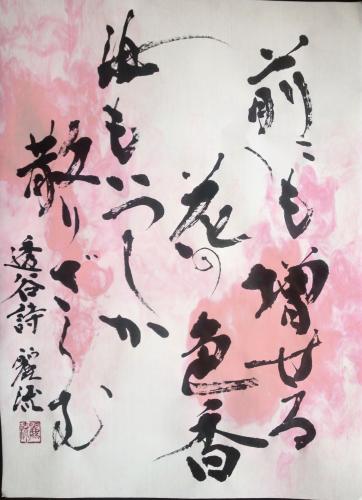 前にも増せる
花の色香
汝もいつしか
散りざらむ
透谷詩